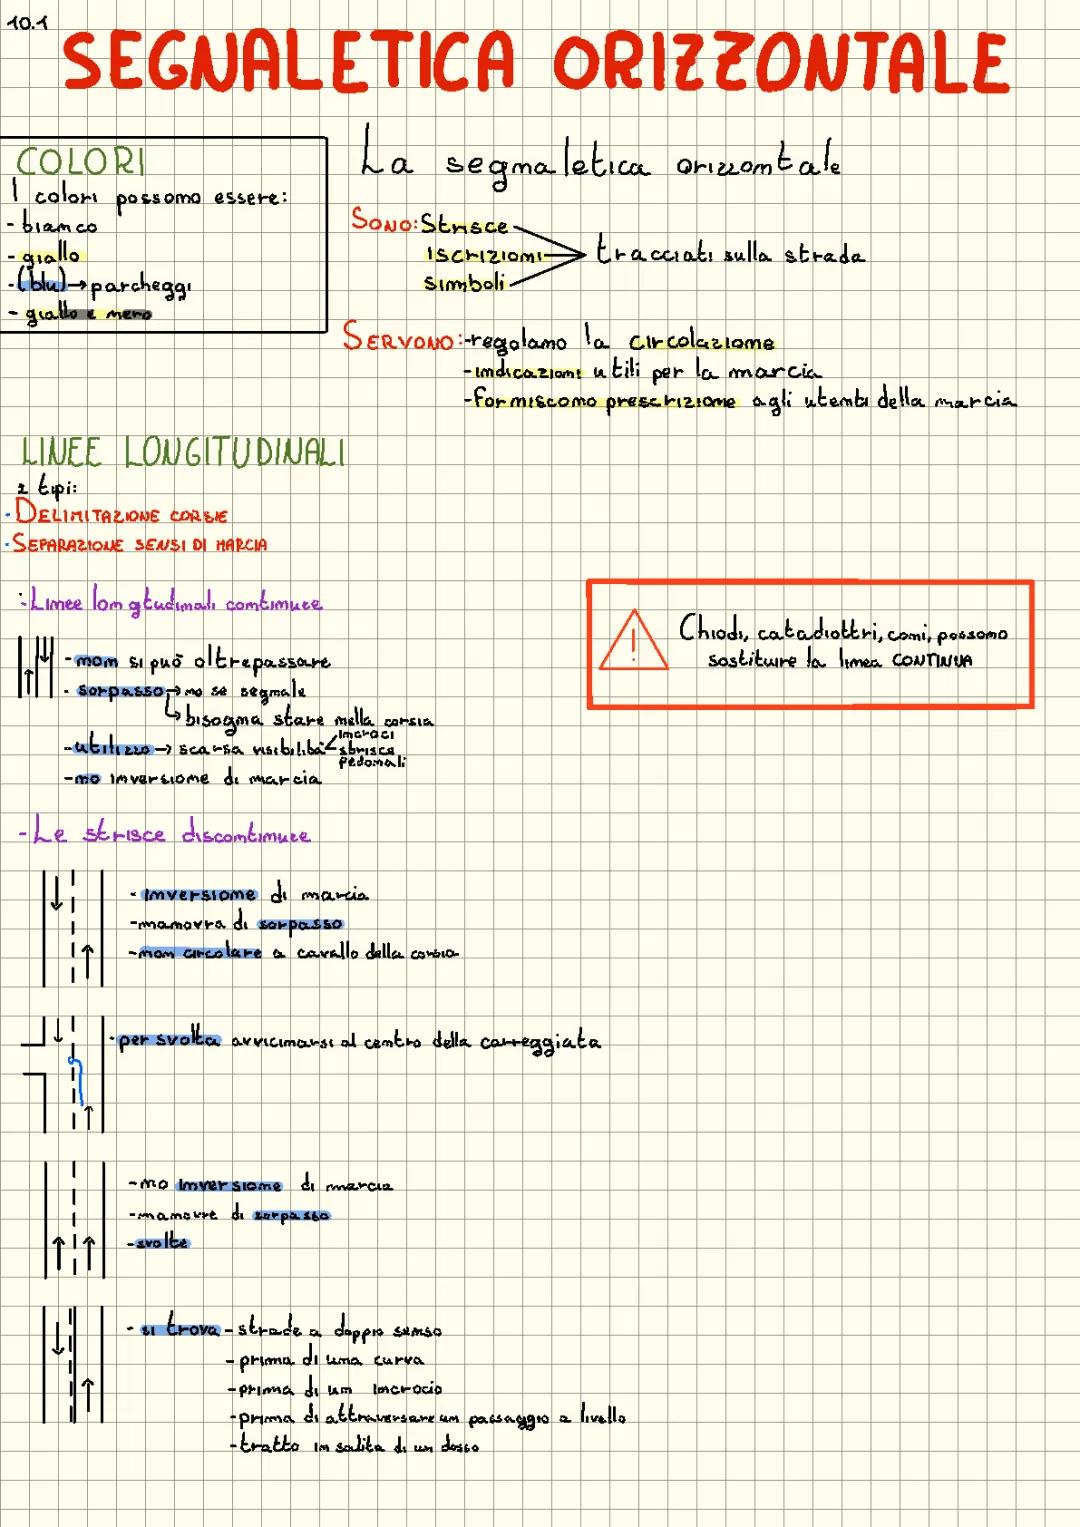 10.1
SEGNALETICA ORIZZONTALE
COLORI
I colori possono essere:
- bianco
- giallo
- (blu)→parcheggi
- giallo e nero
La segnaletica orizzontale
SONO: Strisce
iscrizioni
simboli
tracciati sulla strada
SERVONO: -regolano la circolazione
-indicazioni utili per la marcia
-forniscono prescrizione agli utenti della marcia
LINEE LONGITUDINALI
2 tipi:
·DELIMITAZIONE CORSIE
·SEPARAZIONE SENSI DI MARCIA
Linee longtudinali continuee
-non si può oltrepassare
- sorpasso→no se segnale
↳bisogna stare nella corsia
-utilizzo→ scarsa visibilità
incroci
strisce
pedonali
-no inversione di marcia
Chiodi, catadiottri, coni, possono
sostituire la linea CONTINUA
-Le strisce discontinuee
- inversione di marcia
-manovra di sorpasso
-non circolare a cavallo della corsia
-per svolta avvicinarsi al centro della carreggiata
-no inversione di marcia
-manovre di sorpasso
-svolte
- si trova -strade a doppio senso
-prima di una curva
-prima di un incrocio
-prima di attraversare un passaggio a livello
-tratto in salita di un dosso